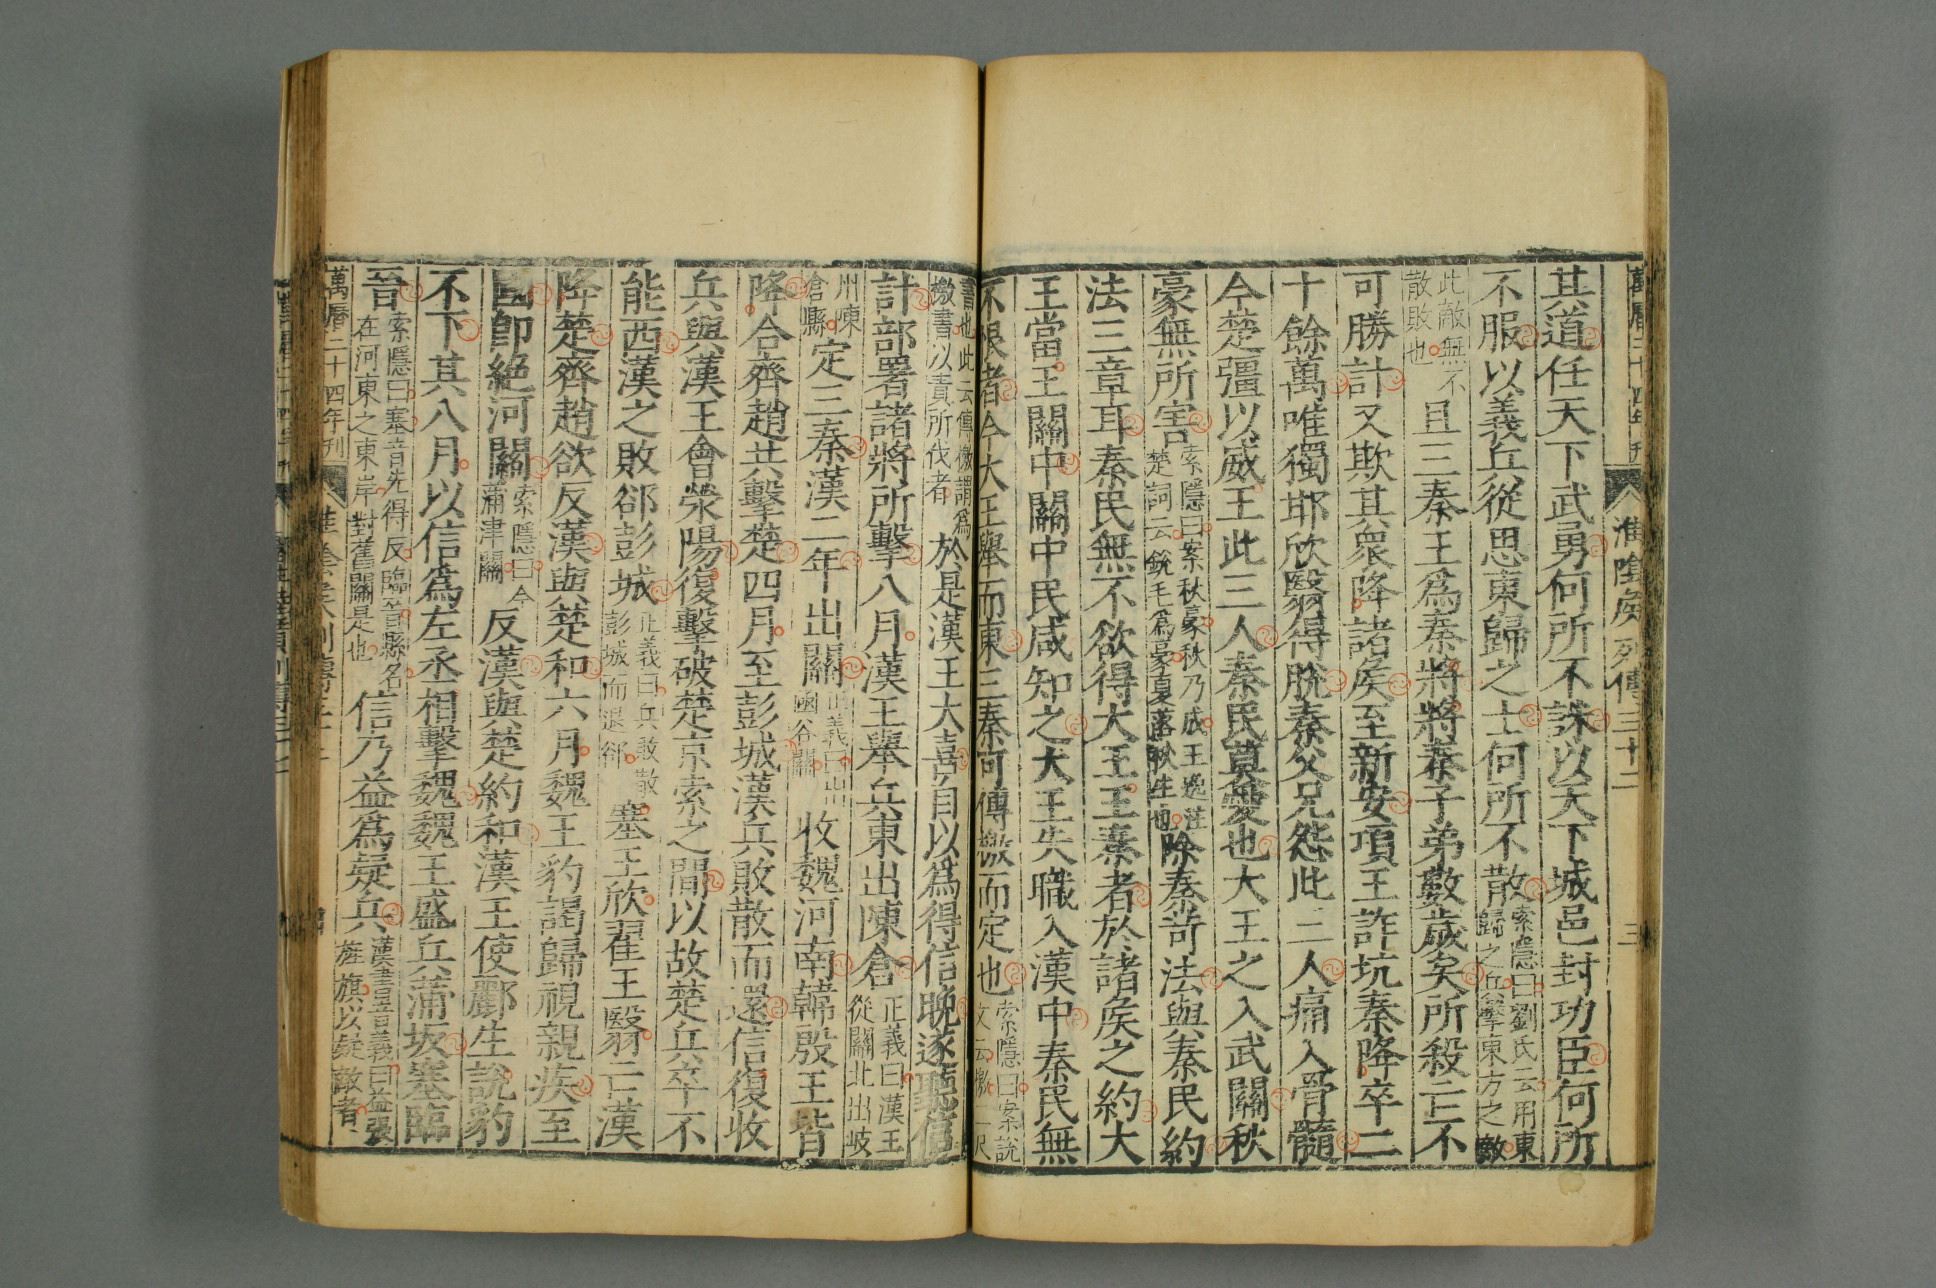 萬曆二十四年刊 淮陰矦列傳三十二 三
其道任天下武勇何所不誅以天下城邑封功臣何所
不服以義兵從思東歸之士何所不散索隱曰劉氏云用東歸之兵擊東方之敵
此敵無不散敗也且三秦王爲秦將將秦子弟數歲矣所殺亡不
可勝計又欺其衆降諸矦至新安項王詐坑秦降卒二
十餘萬唯獨邯欣翳得脫秦父兄怨此三人痛入骨髓
今楚彊以威王此三人秦民莫愛也大王之入武關秋
豪無所害索隱曰案秋豪秋乃成王逸注楚詞云銳毛爲豪夏落秋生也除秦苛法與秦民約
法三章耳秦民無不欲得大王王秦者於諸矦之約大
王當王關中關中民咸知之大王失職入漢中秦民無
不恨者今大王舉而東三秦可傳檄而定也索隱曰案說文云檄二尺
書也此云傳檄謂爲檄書以責所伐者於是漢王大喜自以爲得信晚遂聽信
計部署諸將所擊八月漢王舉兵東出陳倉正義曰漢王從關北出岐
州陳倉縣定三秦漢二年出關正義曰出函谷關收魏河南韓殷王皆
降合齊趙共擊楚四月至彭城漢兵敗散而還信復收
兵與漢王會滎陽復擊破楚京索之間以故楚兵卒不
能西漢之敗郤彭城正義曰兵敗散彭城而退郤塞王欣翟王翳亡漢
降楚齊趙欲反漢與楚和六月魏王豹謁歸視親疾至
國卽絕河關索隱曰今蒲津關反漢與楚約和漢王使酈生說豹
不下其八月以信爲左丞相擊魏魏王盛兵蒲坂塞臨
晉索隱曰塞音先得反臨晉縣名在河東之東岸對舊關是也信乃益爲疑兵漢書音義曰益張旌旗以疑敵者
萬曆二十四年刊